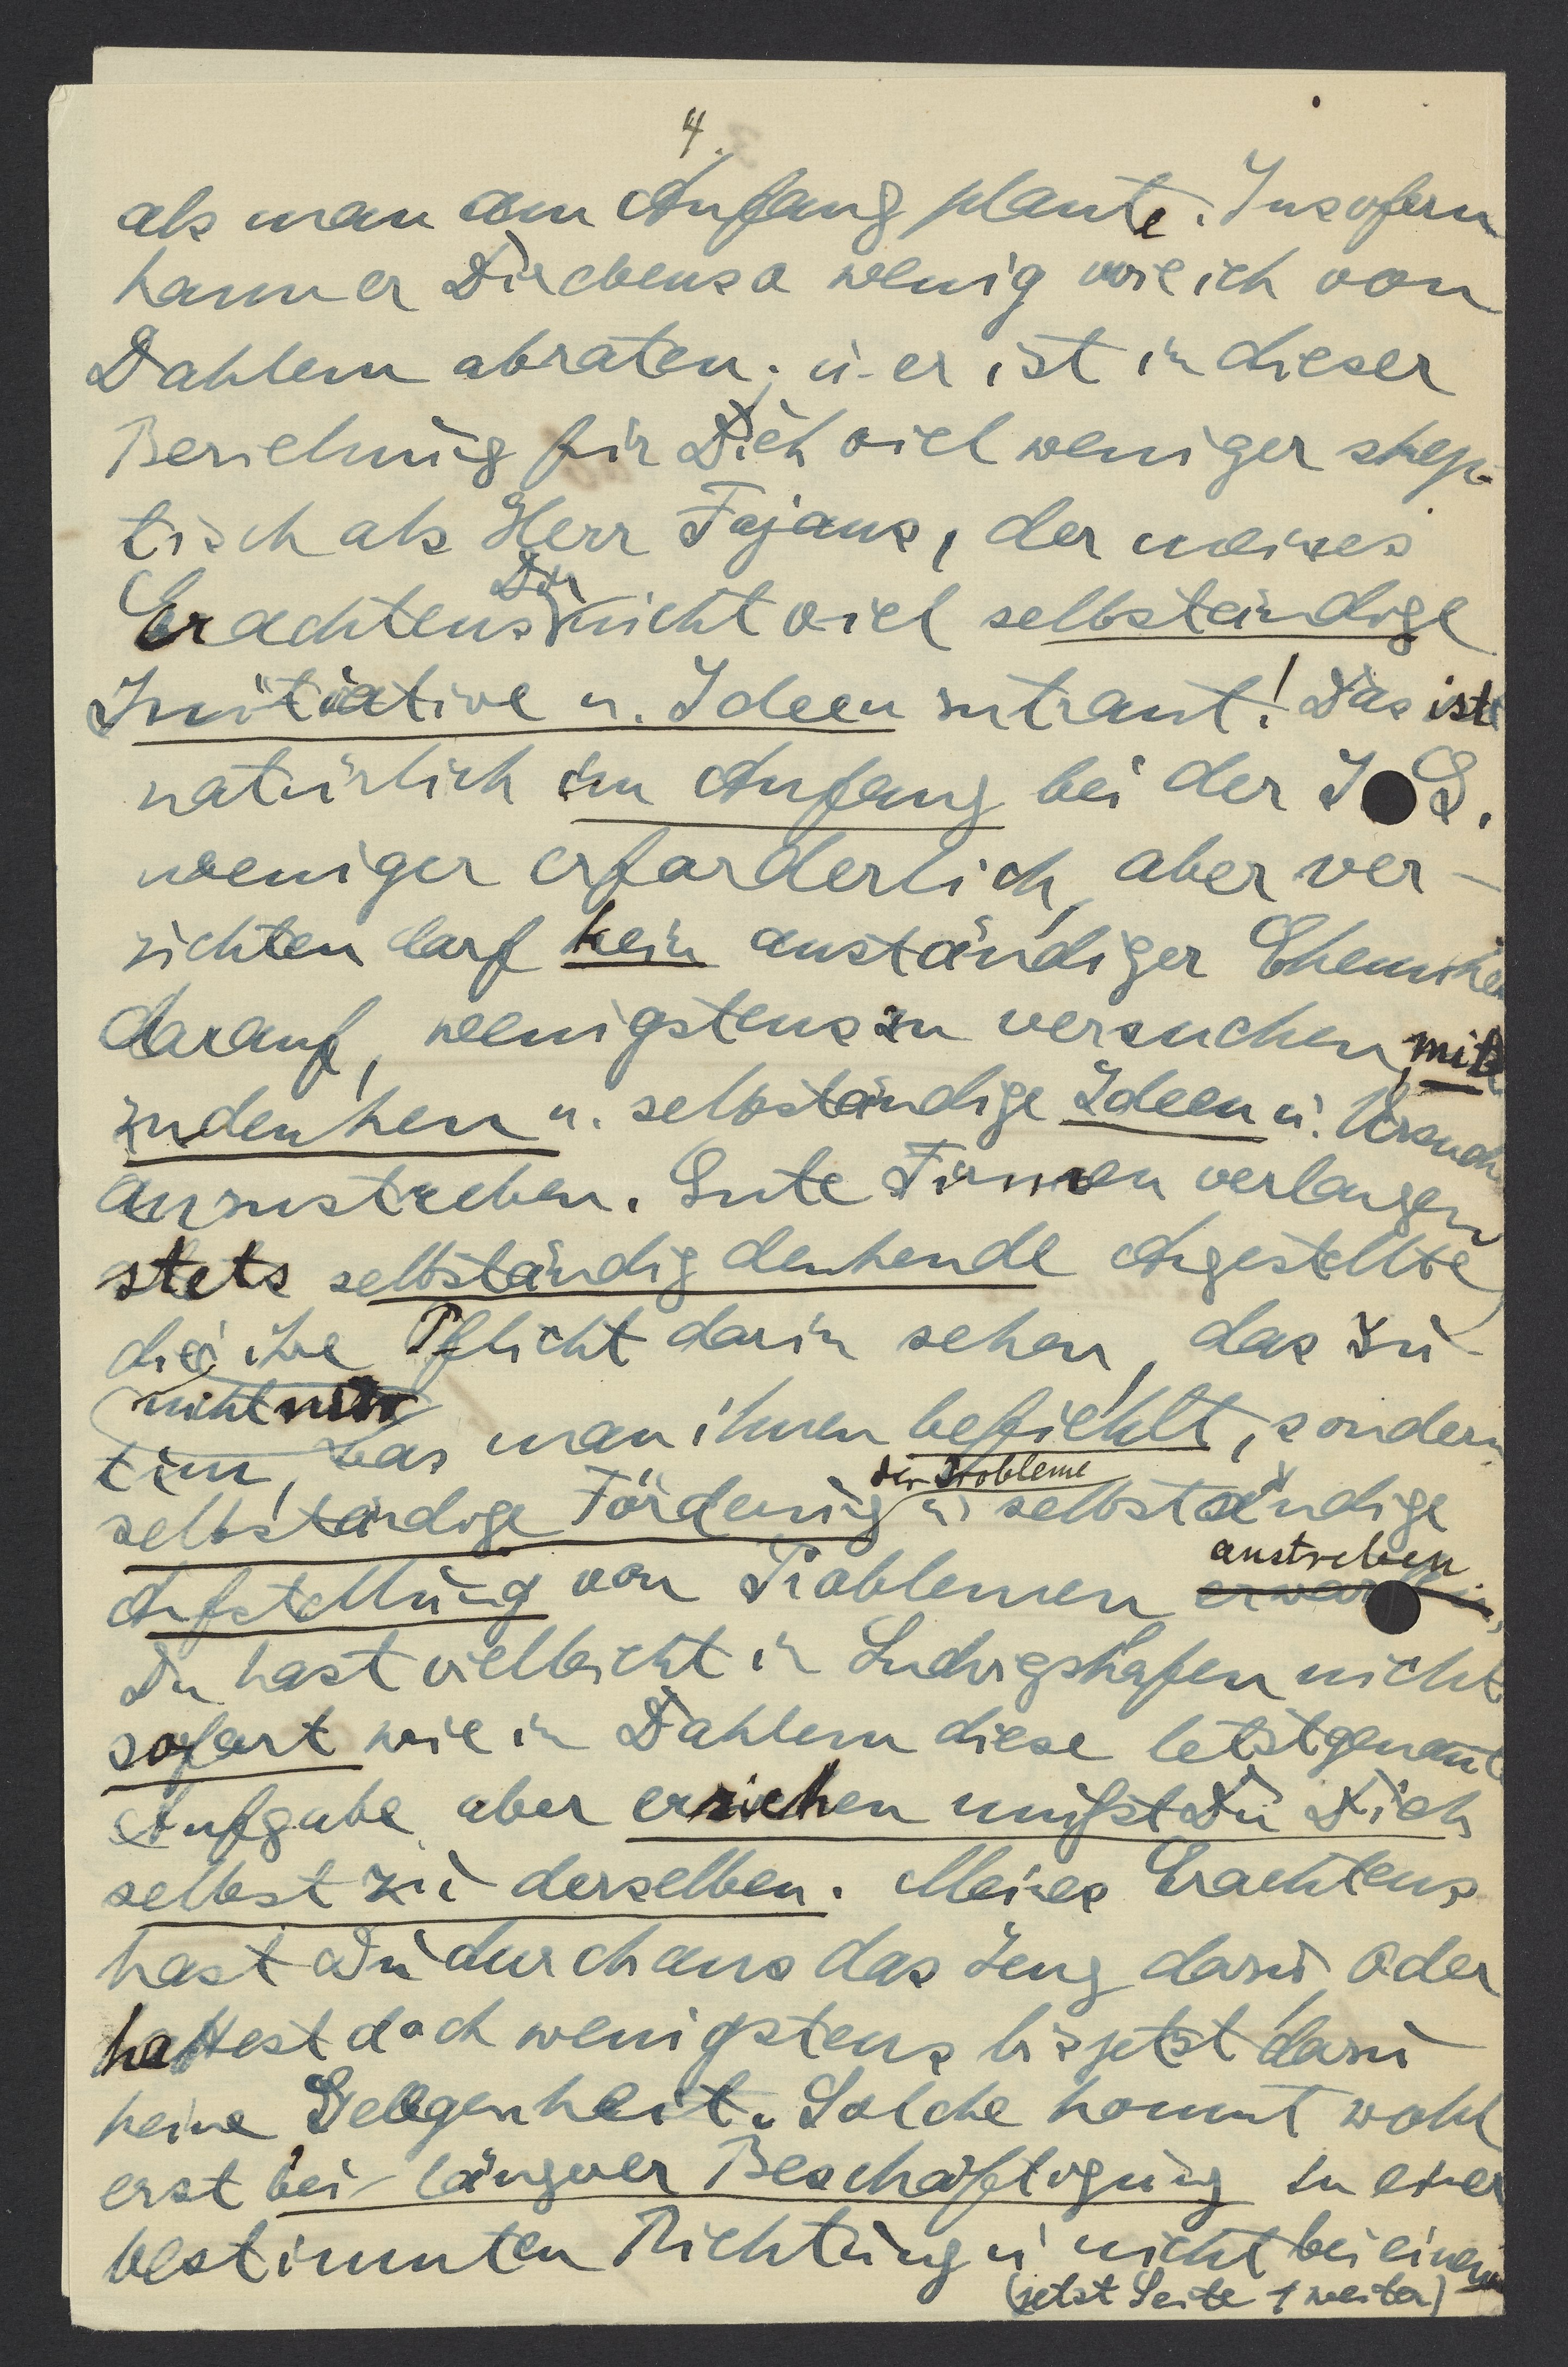 4.
als man am Anfang plante. Insofern
kann er Dir ebenso wenig wie ich von
Dahlem abraten; u. er ist in dieser
Beziehung für Dich viel weniger skep-
tisch als Herr Fajans, der meines
Erachtens Dir nicht viel selbständige
Initiative u. Ideen zutraut! Das ist
natürlich im Anfang bei der I.G.
weniger erforderlich, aber ver-
zichten darf kein anständiger Chemiker
darauf, wenigstens zu versuchen, mit
zudenken u. selbständige Ideen u. Versuche
anzustreben. Gute Firmen verlangen
stets selbständig denkende Angestellte,
die ihre Pflicht darin sehen, das zu
nicht nur
tun, was man ihnen befiehlt, sondern
selbständige Förderung der Probleme u. selbständige
Aufstellung von Problemen anstreben
Du hast vielleicht in Ludwigshafen nicht
sofort wie in Dahlem diese letztgenannte
Aufgabe, aber erziehen mußt Du Dich
selbst zu derselben. Meines Erachtens
hast Du durchaus das Zeug dazu, oder
hattest doch wenigstens bis jetzt dazu
keine Gelegenheit. Solche kommt wohl
erst bei längerer Beschäftigung in einer
bestimmten Richtung u. nicht bei einem
(jetzt Seite 1 weiter)